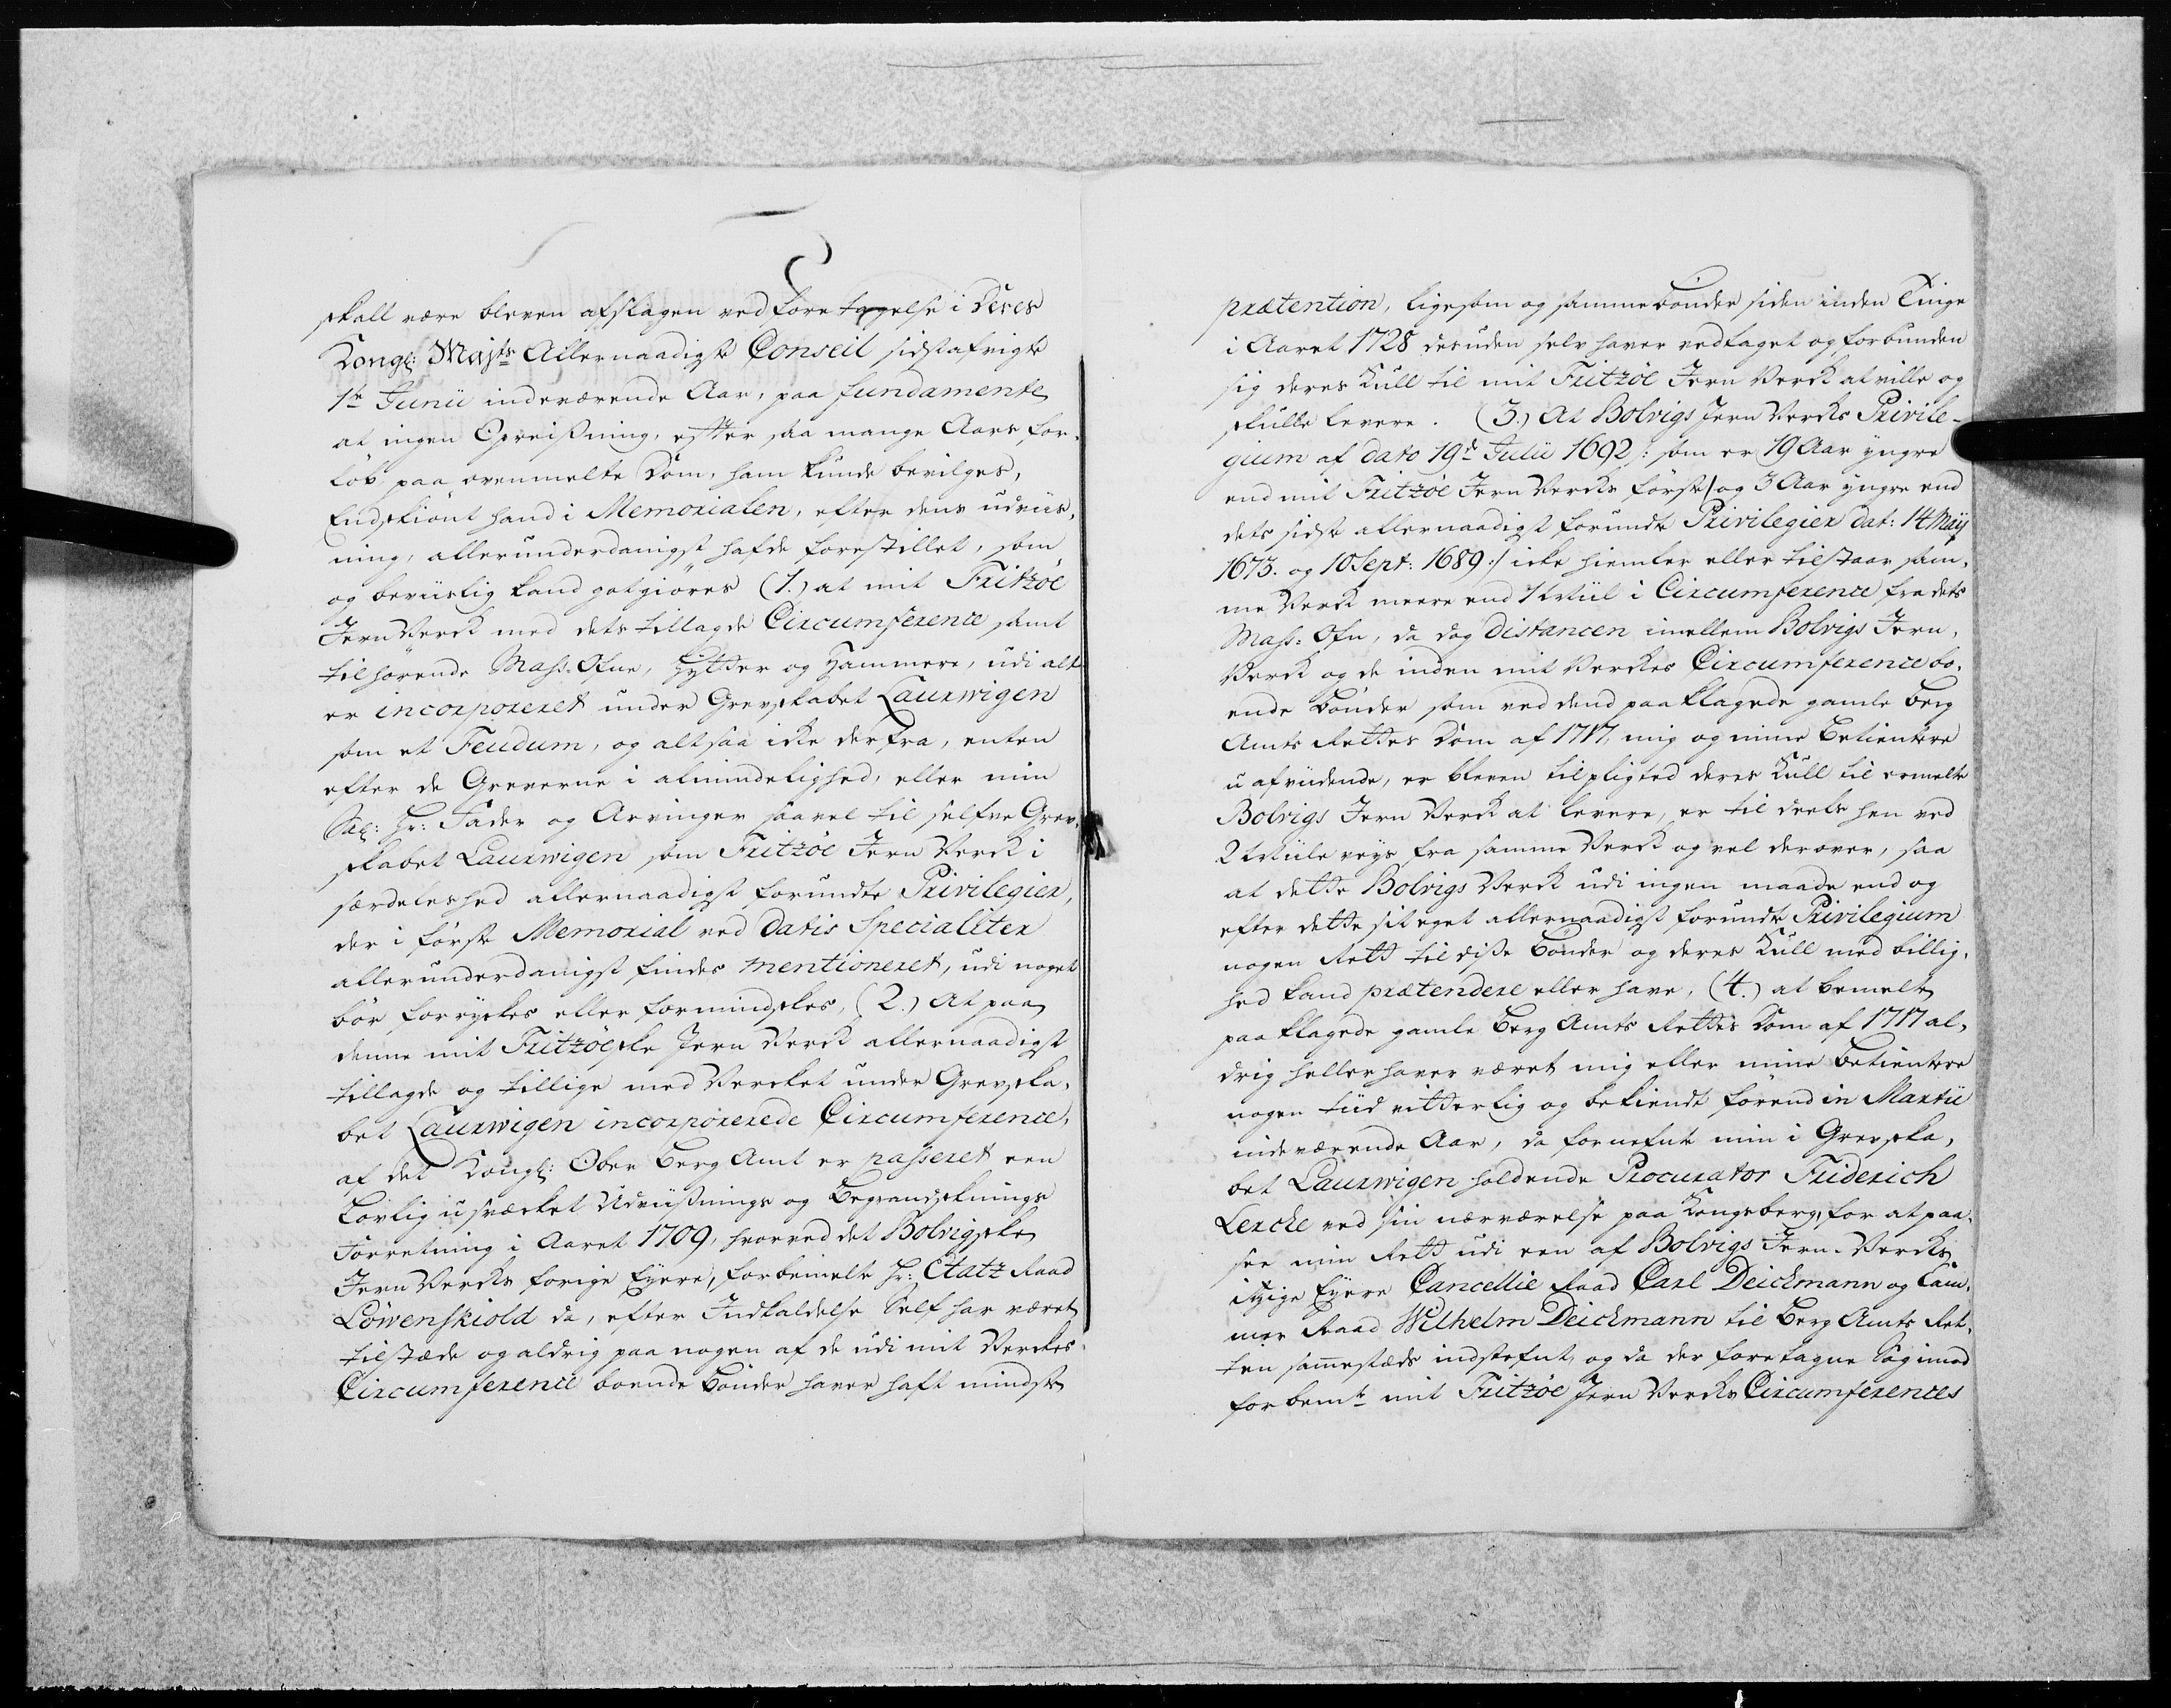 skall være bleven afslagen ved foretagelse i Deres
Kongl: Majts Allernaadigste Conseil sidstafvigte
1te Junii indeværende Aar, paa fundamente
at ingen Opreißning, effter saa mange Aars for-
løb, paa ovenmelte Dom, ham kunde bevilges,
Endskiønt hand i Memorialen, efter dens udviis-
ning, allerunderdanigst hafde forestillet, som
og beviislig kand gotgiøres (1.) at mit Fritzøe
Jern Verck med dets tillagde Circumference samt
tilhørende Mass-Ofne, Hytter og Hammere, udi alt
er incorporeret under Grevskabet Laurwigen
som et Feudum, og altsaa icke derfra, enten
efter de Greverne i almindelighed, eller min
Sal: Hr: Fader og Arvinger saavel til selfve Grev-
skabet Laurwigen som Fritzøe Jern Verck i
særdeleshed allernaadigst forundte Privilegier,
der i første Memorial ved Datis Specialiter
allerunderdanigst findes mentioneret, udi noget
bør forryckes eller formindskes, (2.) At paa
denne mit Fritzøeske Jern Verck allernaadigst
tillagde og tillige med Vercket under Grevska-
bet Laurwigen incorporerede Circumference,
af det Kongl: Ober Berg Amt er passeret een
Lovlig usvæcket Udviißnings og Begrandsknings
Forretning i Aaret 1709, hvorved det Bolvigske
Jern Vercks forige Eyere, forbemelte Hr: Etatz Raad
Löwenskiold da, efter Indkaldelse Self har været
tilstæde og aldrig paa nogen af de udi mit Verckes
Circumference boende Bønder haver haft mindste
prætention, ligesom og samme bønder siden inden Tinge
i Aaret 1728 desuden selv haver vedtaget og forbunden
sig deres Kull til mit Fritzöe Jern Verck at ville og
skulle levere. (3.) At Bolvigs Jern Vercks Privile-
gium af dato 19de Julii 1692 /: som er 19 Aar yngre
end mit Fritzöe Jern Vercks første/ og 3 Aar yngre end
dets sidste allernaadigst forundte Privilegier dat: 14 Maij
1673. og 10 Sept: 1689 :/ icke hiemler eller tilstaar sam-
me Verck meere end 1 Miil i Circumference fra dets
Mass-Ofn, da dog Distancen imellem Bolvigs Jern-
Verck og de inden mit Verckes Circumference bo-
ende Bønder som ved dend paaklagede gamle Berg
Amts Rettes Dom af 1717, mig og mine Betientere
uafviidende, er bleven tilpligted deres Kull til ermelte
Bolvigs Jern Verck at levere, er til deels hen ved
2 Miile veys fra samme Verck og vel derover, saa
at dette Bolvigs Verck udi ingen maade end og
efter dette sit eget allernaadigst forundte Privilegium
nogen Rett til disse Bønder og deres Kull med billig-
hed kand prætendere eller have, (4.) at bemelte
paaklagede gamle Berg Amts Rettes Dom af 1717 al-
drig heller haver været mig eller mine Betientere
nogen tiid vitterlig og bekiendt førend in Martii
indeværende Aar, da fornefnte min i Grevska-
bet Laurwigen holdende Procurator Friderich
Lerche ved sin nærværelse paa Kongsberg, for at paa-
see min Rett udi een af Bolvigs Jern-Vercks
itzige Eyere Cancellie Raad Carl Deichmann og Cam-
mer Raad Wilhelm Deichmann til Berg Amts Ret-
ten sammestæds indstefnte, og da der foretagne Sag imod
forbemte mit Fritzöe Jern Vercks Circumferences